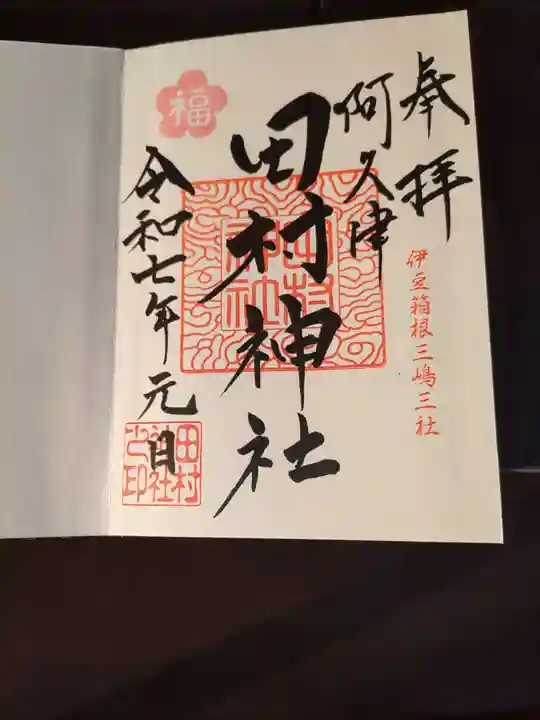 奉拝
伊豆箱根三嶋三社
阿久津
田村神社
田村神社
福
令和七年元日
田村
神社
之印